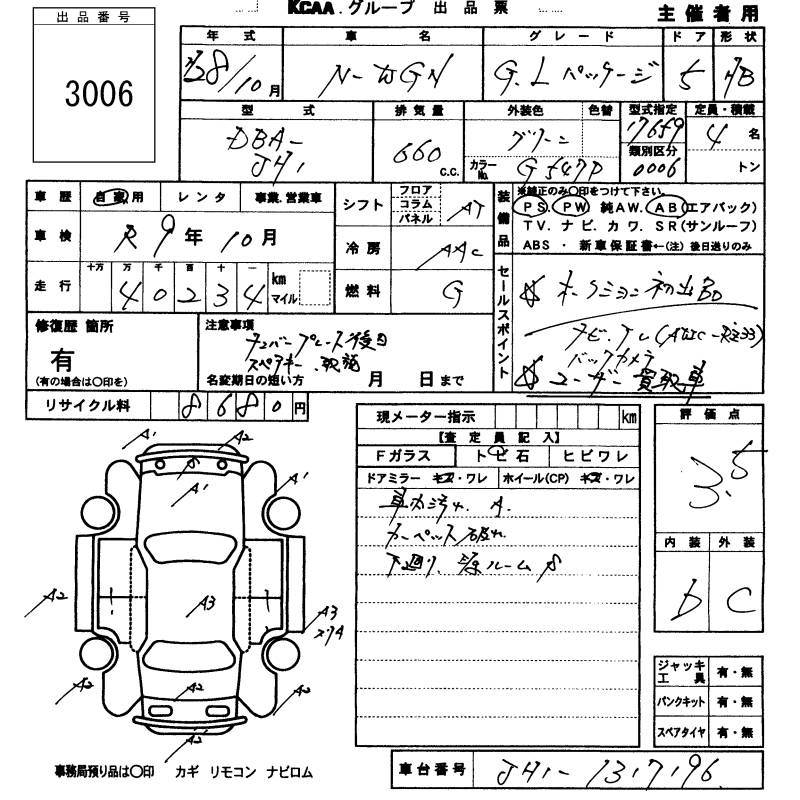 KCAA.グループ 出品票
主催者用
出品番号
3006
年式 車名 グレード ドア 形状
H28/10月 N-WGN G.Lパッケージ 5 HB
型式 排気量 外装色 色替 型式指定 定員・積載
DBA-JH1 660 C.C. グリーン 17659 4名
カラーNo. G547P 類別区分 0006 トン
車歴 自家用 レンタ 事業.営業車
車検 R9年10月
走行 十万 万 千 百 十 一
40234 km マイル
シフト フロア コラム パネル AT
冷房 AAC
燃料 G
装備品
※純正のみ○印をつけて下さい。
PS. PW 純AW. AB(エアバック)
TV. ナビ. カワ. SR(サンルーフ)
ABS ・ 新車保証書←(注)後日送りのみ
セールスポイント
オークション初出品
ナビ.TV
バックカメラ
ユーザー買取車
修復歴 箇所
有
(有の場合は○印を)
注意事項
ナンバープレート後日
スペアキー.取説
名変期日の短い方 月 日まで
リサイクル料 8680円
現メーター指示 km
【査定員記入】
Fガラス トビ石 ヒビワレ
ドアミラー キズ・ワレ ホイール(CP) キズ・ワレ
車内汚れ. A.
カーペット破れ
下廻り. ルーム S
評価点
3.5
内装 外装
D C
A1 A2
S
A1 A1
A2 A3 A3
A2 A2 A2
A2
ジャッキ工具 有・無
パンクキット 有・無
スペアタイヤ 有・無
事務局預り品は○印 カギ リモコン ナビロム
車台番号 JH1-1317196